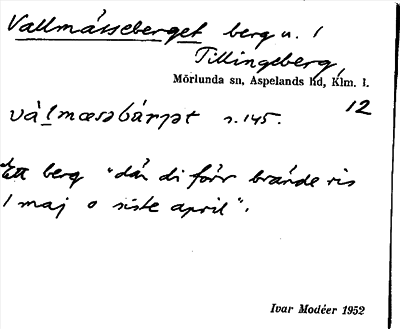 Vallmásseberget berg u. /
Tillingeberg,
Mörlunda sn, Aspelands hd, Klm. l.
12
válmæsəbárjət s. 145.
Ett berg "dår di förr brånde ris
1 maj o siste april".
Ivar Modéer 1952